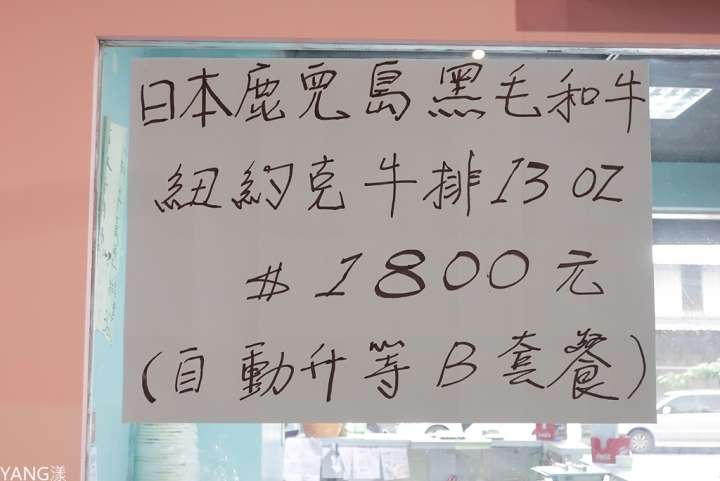 日本鹿兒島黑毛和牛
紐約克牛排13 OZ
$1800元
(自動升等B套餐)
YANG漾